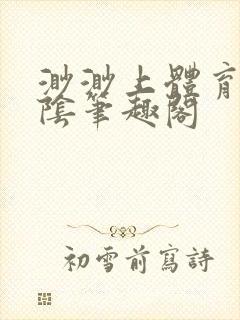 渺渺上體育
陰筆趣閣
初雪前寫詩